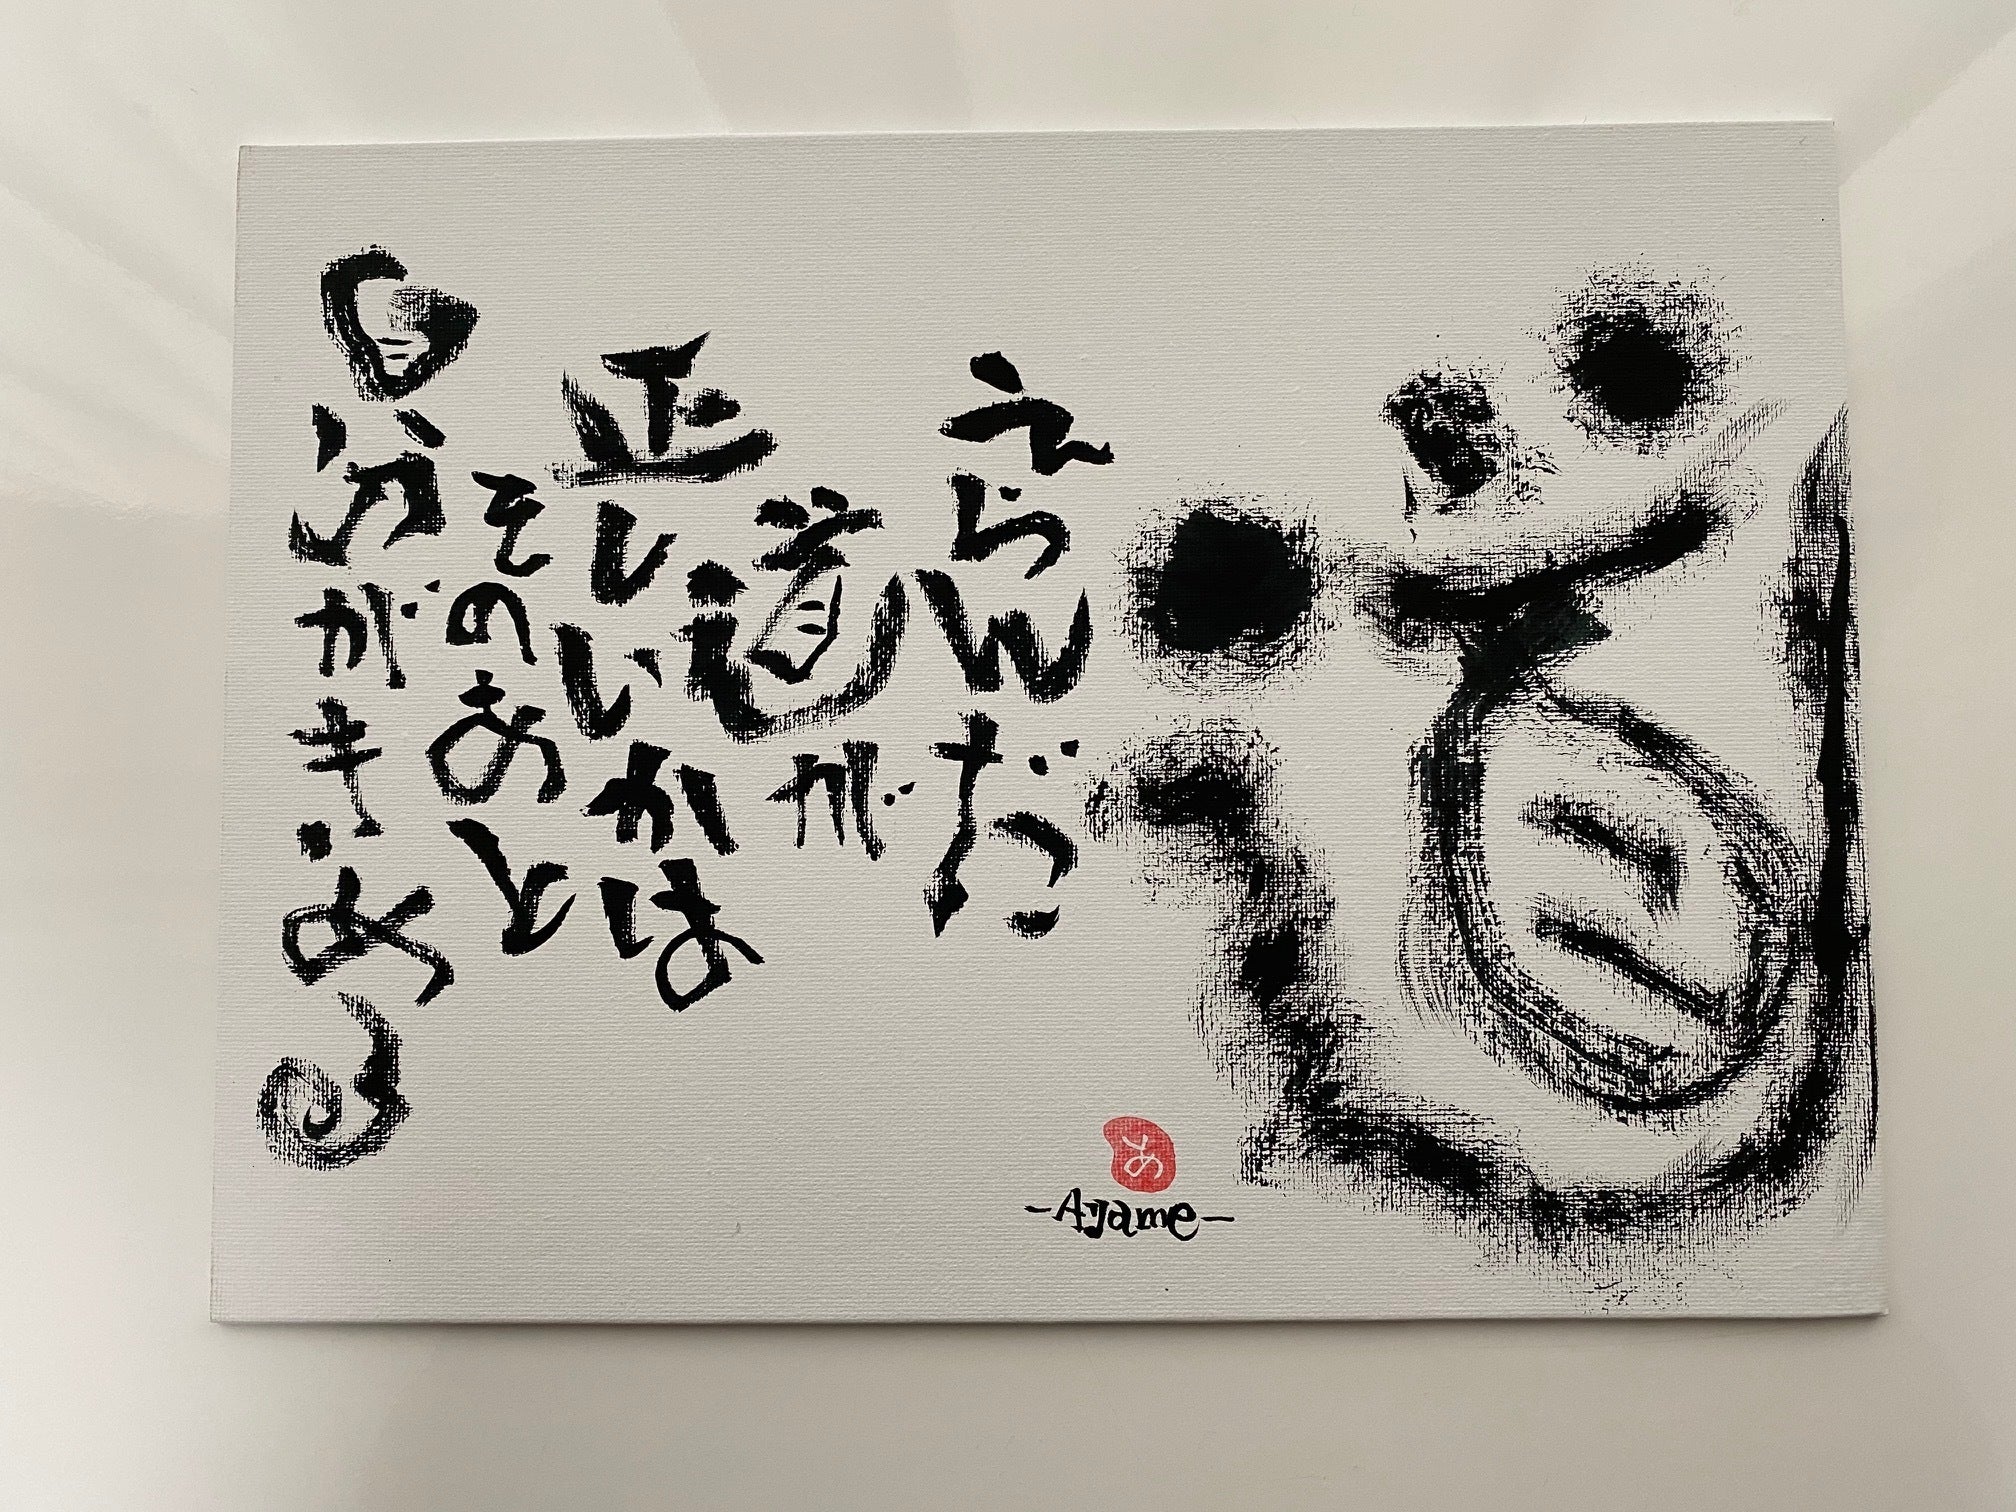 道
えらんだ
道が
正しいかは
そのあと
自分がきめる
あ
-Ayame-